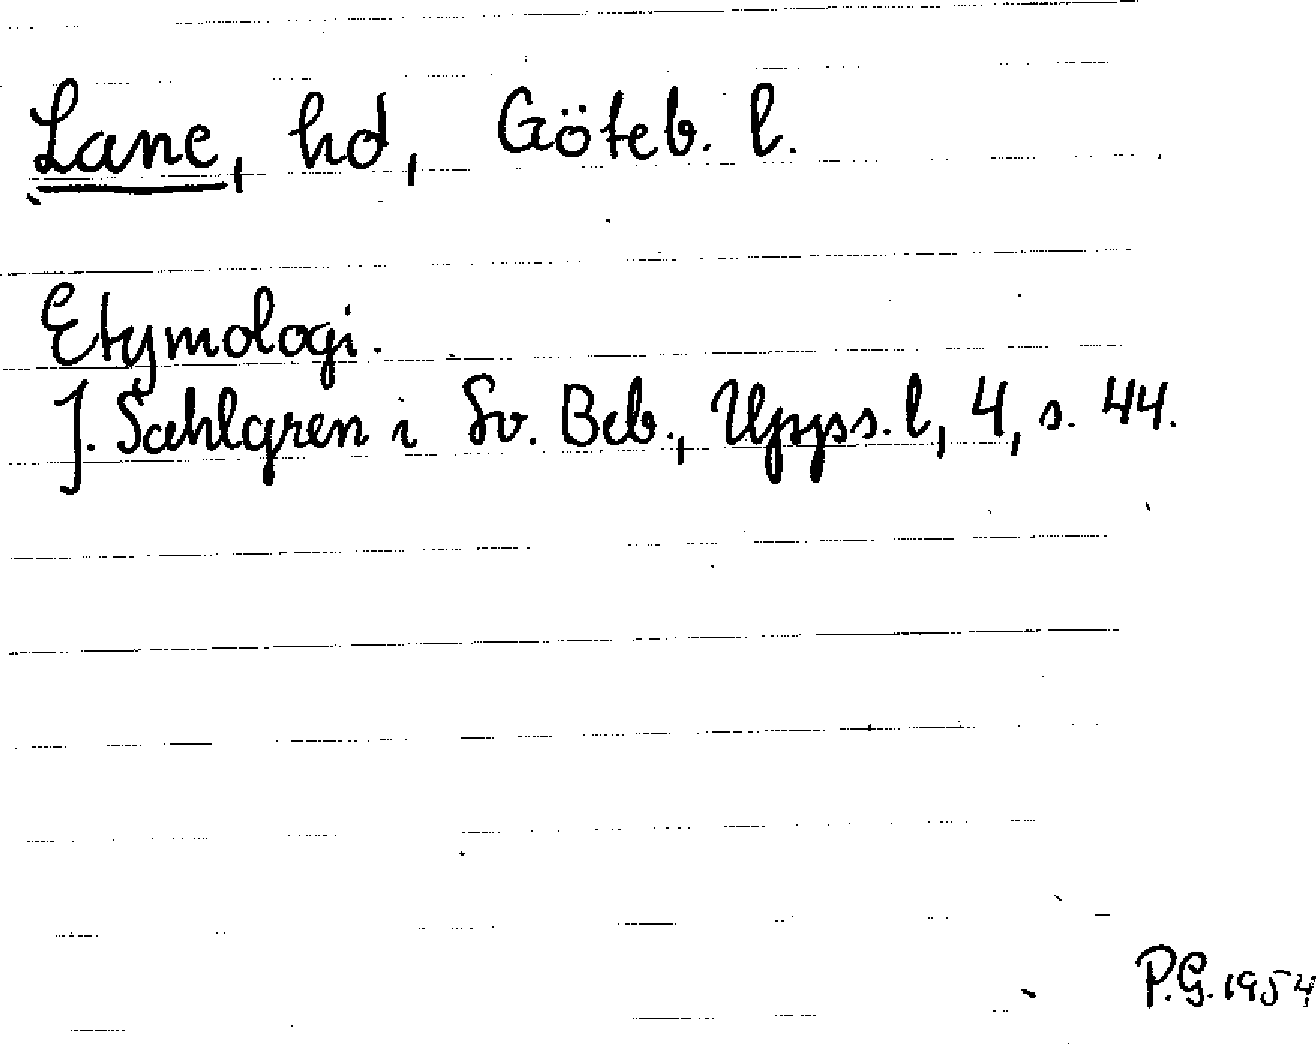 Lane, hd, Göteb. l.
Etymologi.
J. Sahlgren i Sv. Beb., Upps. l, 4, s. 44.
P.G. 1954